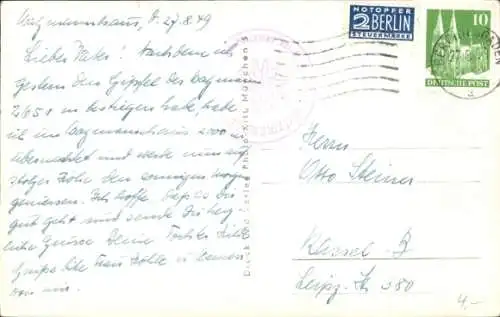 Watzmannhaus, d. 27.8.49
Lieber Vater! Nachdem ich
gestern den Gipfel des Watzmann
2651 m bestiegen habe, habe
ich im Watzmannhaus 2000
übernachtet und werde nun auf
stolzer Höhe den sonnigen Morgen
geniessen. Ich hoffe, daß es Dir
gut geht und sende Dir
Grüsse Deine Tochter
Frau
von mir.
NOTOPFER
2 BERLIN
STEUERMARKE
10
DEUTSCHE POST
Druck und Verlag Photo-Kitt, München 5
Herrn
Otto Steiner
Kassel - B
Leipz. Str 380
4,-